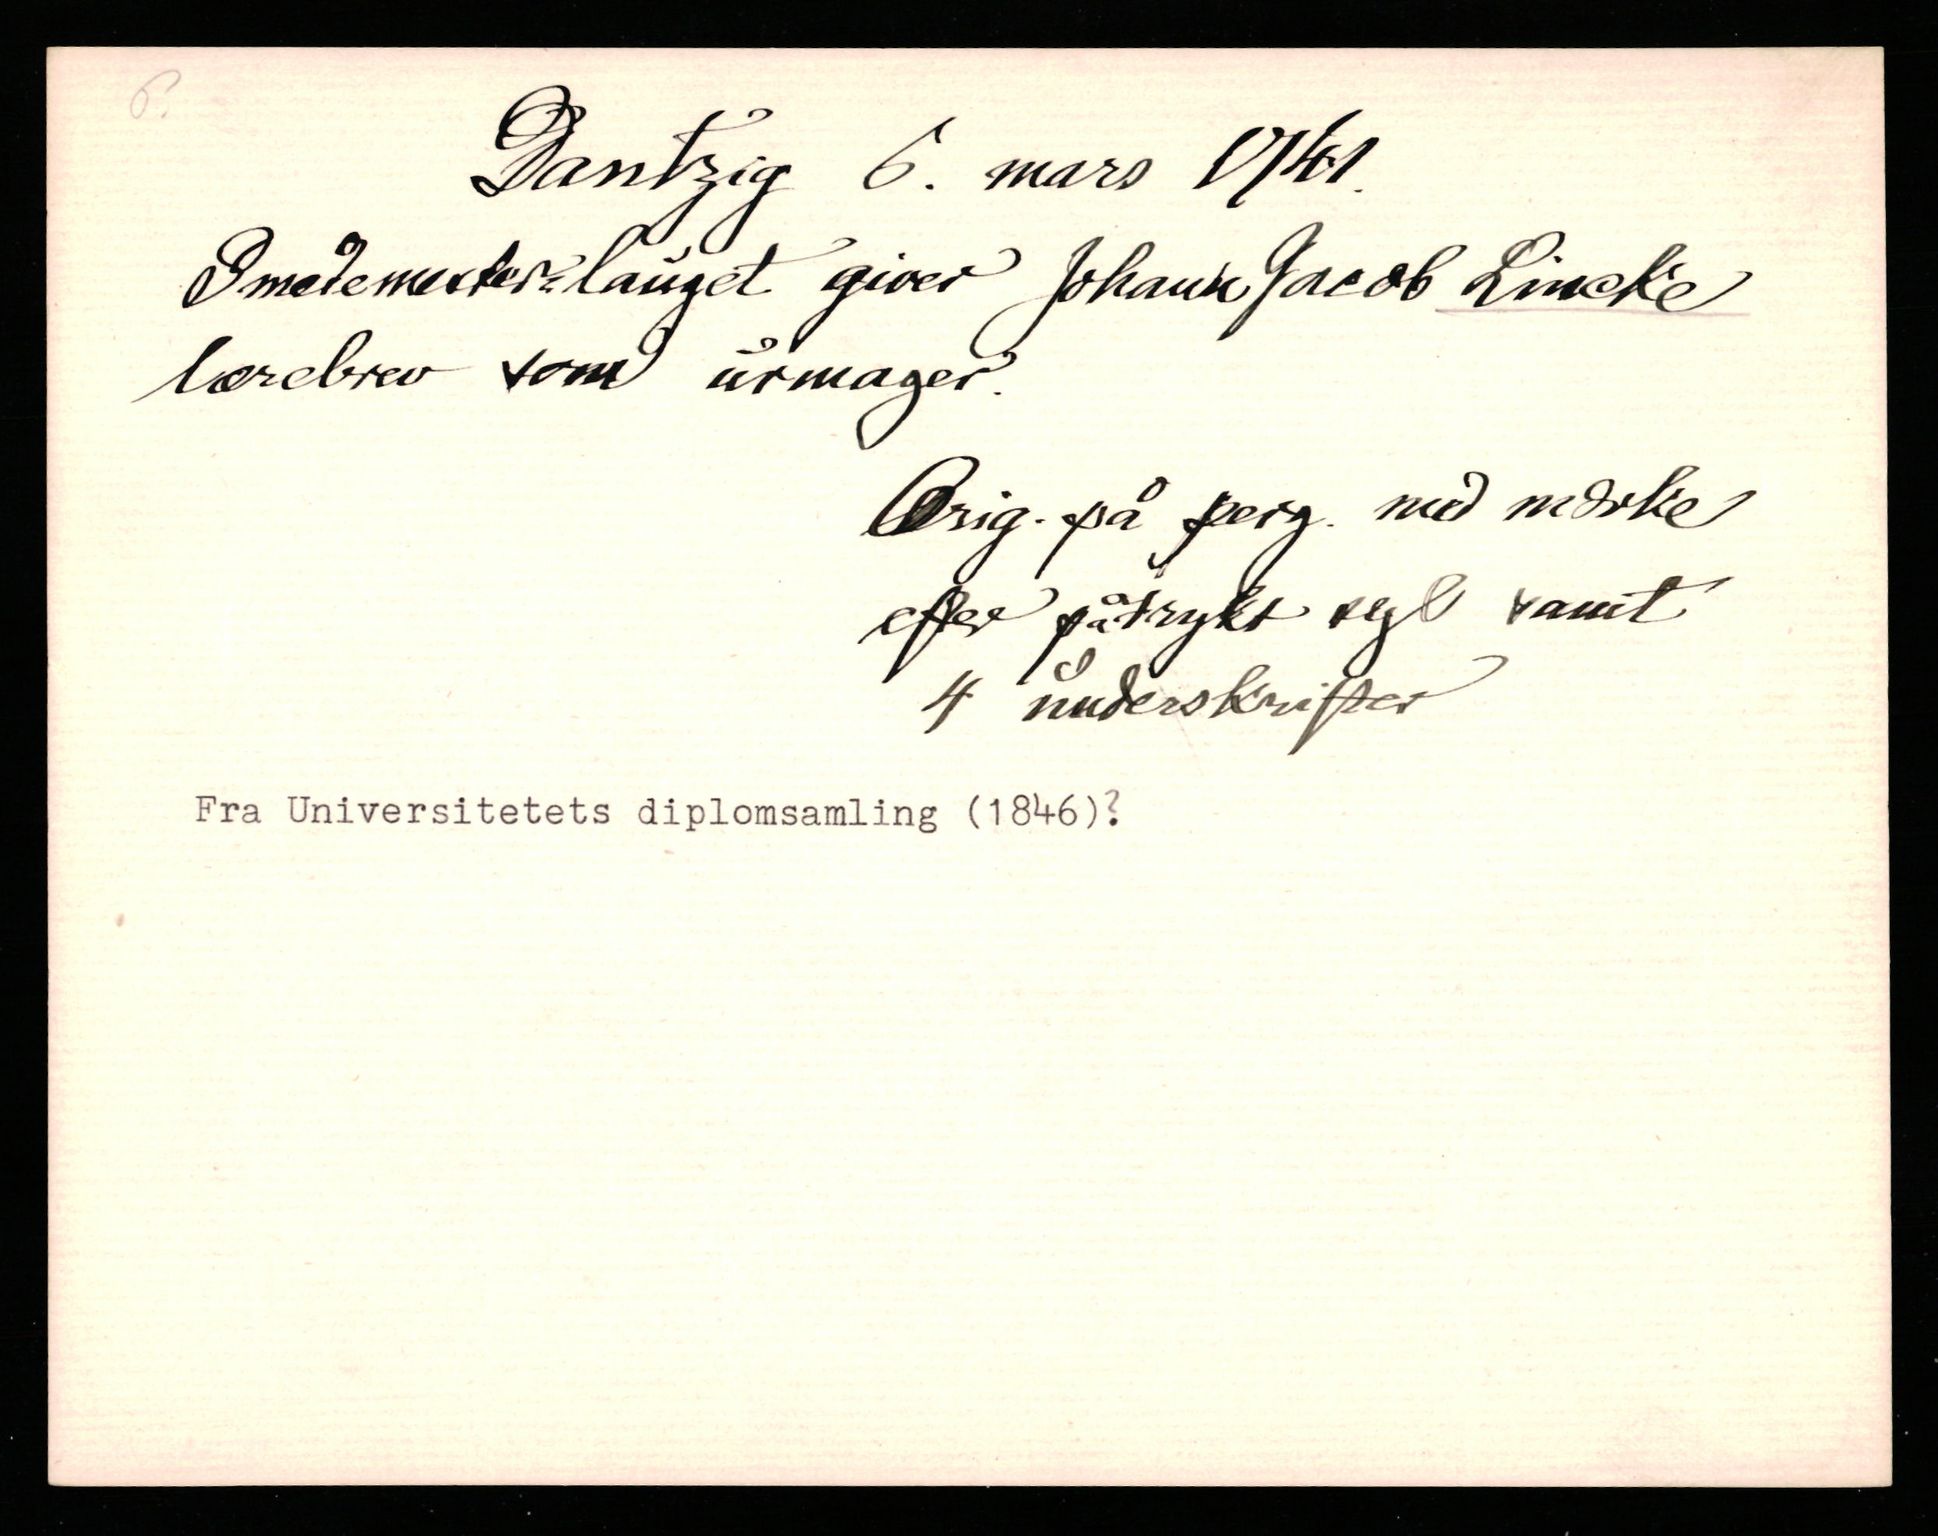 6.
Dantzig 6. mars 1741.
Smedemester-lauget giver Johann Jacob Lincke
lærebrev som urmager.
Orig. på perg. med mærke
efter påtrykt segl samt
4 underskrifter
Fra Universitetets diplomsamling (1846)?